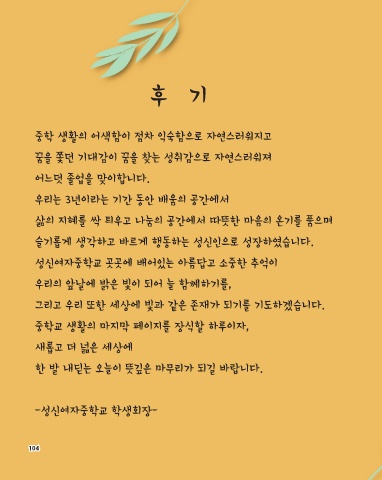 후 기
중학 생활의 어색함이 점차 익숙함으로 자연스러워지고
꿈을 쫓던 기대감이 꿈을 찾는 성취감으로 자연스러워져
어느덧 졸업을 맞이합니다.
우리는 3년이라는 기간 동안 배움의 공간에서
삶의 지혜를 싹 틔우고 나눔의 공간에서 따뜻한 마음의 온기를 품으며
슬기롭게 생각하고 바르게 행동하는 성신인으로 성장하였습니다.
성신여자중학교 곳곳에 배어있는 아름답고 소중한 추억이
우리의 앞날에 밝은 빛이 되어 늘 함께하기를,
그리고 우리 또한 세상에 빛과 같은 존재가 되기를 기도하겠습니다.
중학교 생활의 마지막 페이지를 장식할 하루이자,
새롭고 더 넓은 세상에
한 발 내딛는 오늘이 뜻깊은 마무리가 되길 바랍니다.
-성신여자중학교 학생회장-
104